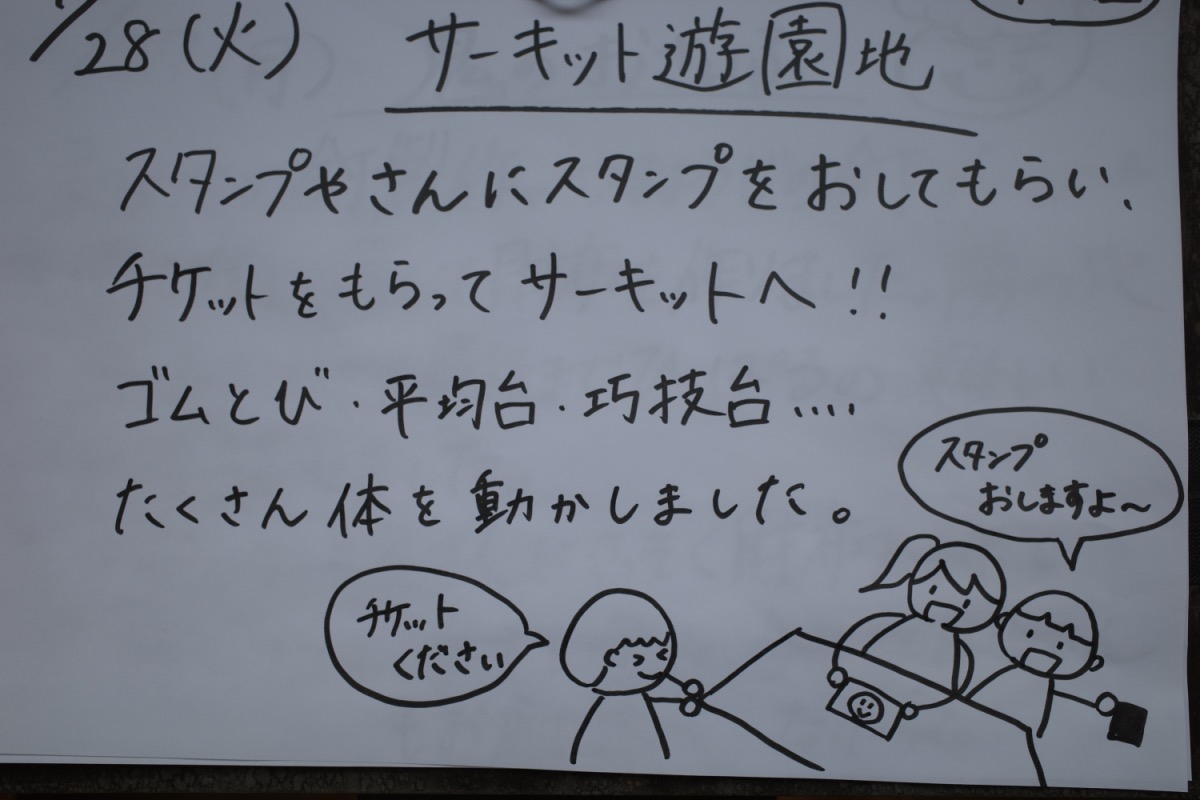 28(火) サーキット遊園地
スタンプやさんにスタンプをおしてもらい、
チケットをもらってサーキットへ!!
ゴムとび・平均台・巧技台....
たくさん体を動かしました。
スタンプ
おしますよ〜
チケット
ください